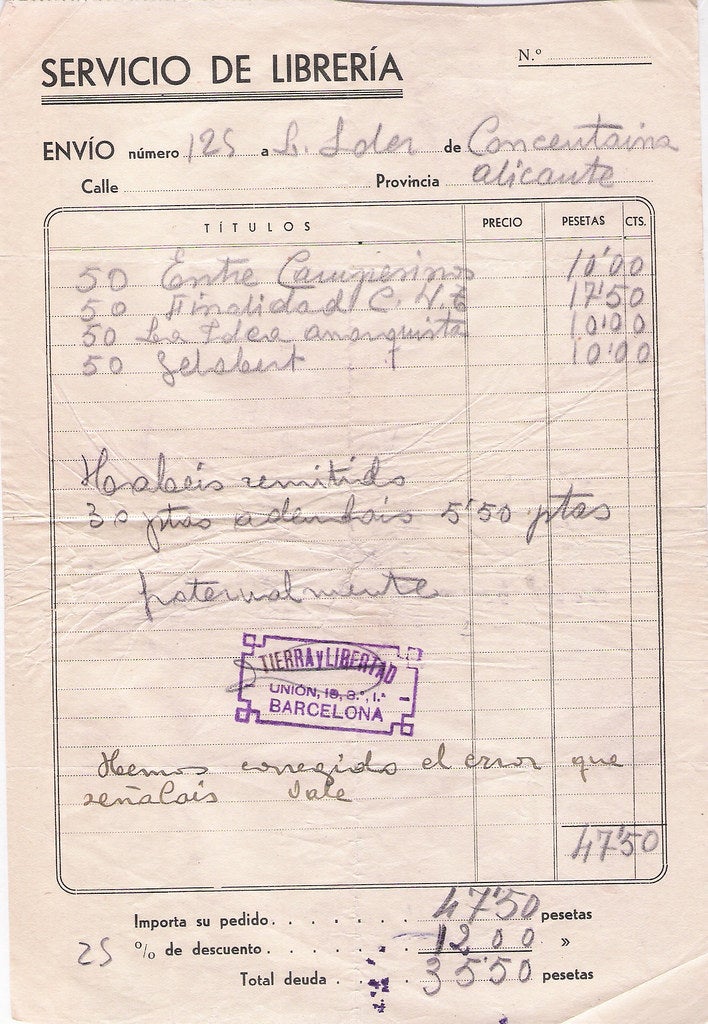 SERVICIO DE LIBRERÍA
N.º
ENVÍO número 125 a L. Ider de Concentaina
Calle Provincia Alicante
TÍTULOS PRECIO PESETAS CTS.
50 Entre Campesinos 10'00
50 Finalidad C. N. T 17'50
50 La Idea anarquista 10'00
50 Gelabert 10'00
Habeis remitido
30 ptas adeudais 5'50 ptas
fraternalmente
TIERRA y LIBERTAD
UNIÓN, 19, 3.º, 1.ª
BARCELONA
Hemos corregido el error que
señalais Vale
47'50
Importa su pedido 47'50 pesetas
25 % de descuento 12 00 »
Total deuda 35'50 pesetas